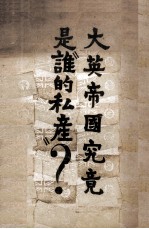 大英帝國究竟
是"誰"的私"產"?